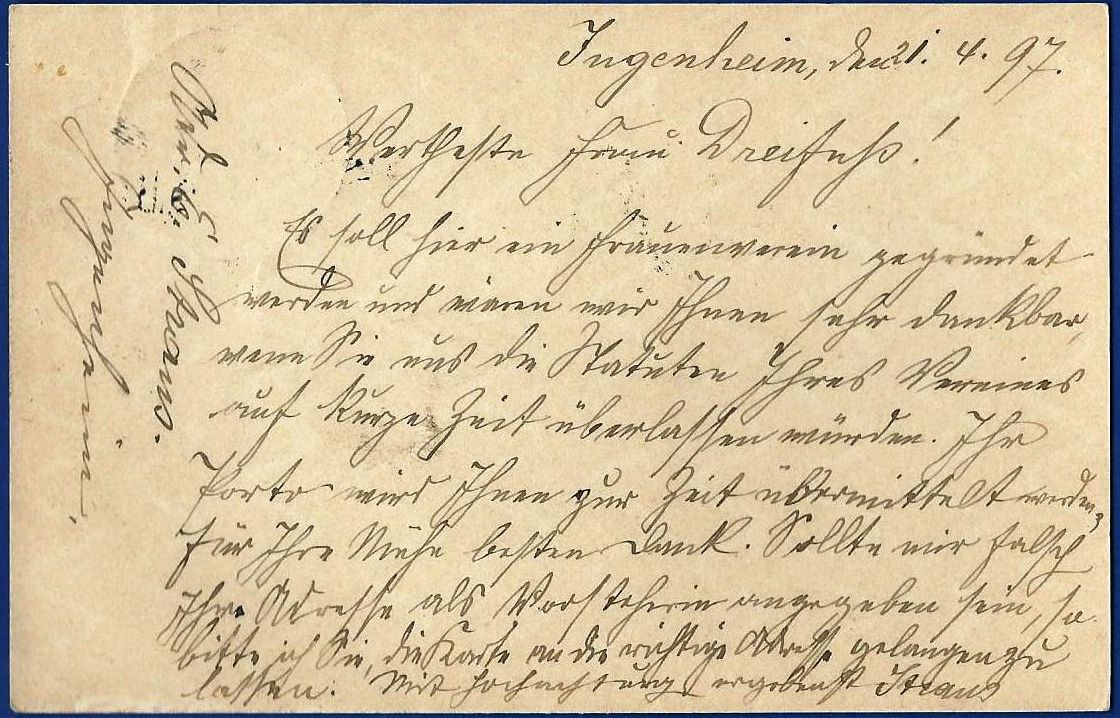 Ingenheim, den 21. 4. 97.
Wertheste Frau Dreifuß!
Es soll hier ein Frauenverein gegründet
werden und wären wir Ihnen sehr dankbar,
wenn Sie uns die Statuten Ihres Vereines
auf kurze Zeit überlassen würden. Ihr
Porto wird Ihnen zur Zeit übermittelt werden,
für Ihre Mühe besten Dank. Sollte mir falsch
Ihre Adresse als Vorsteherin angegeben sein, so
bitte ich Sie, die Karte an die richtige Adresse gelangen zu
lassen. Mit Hochachtung ergebenst Straus
Straus.
Ingenheim.